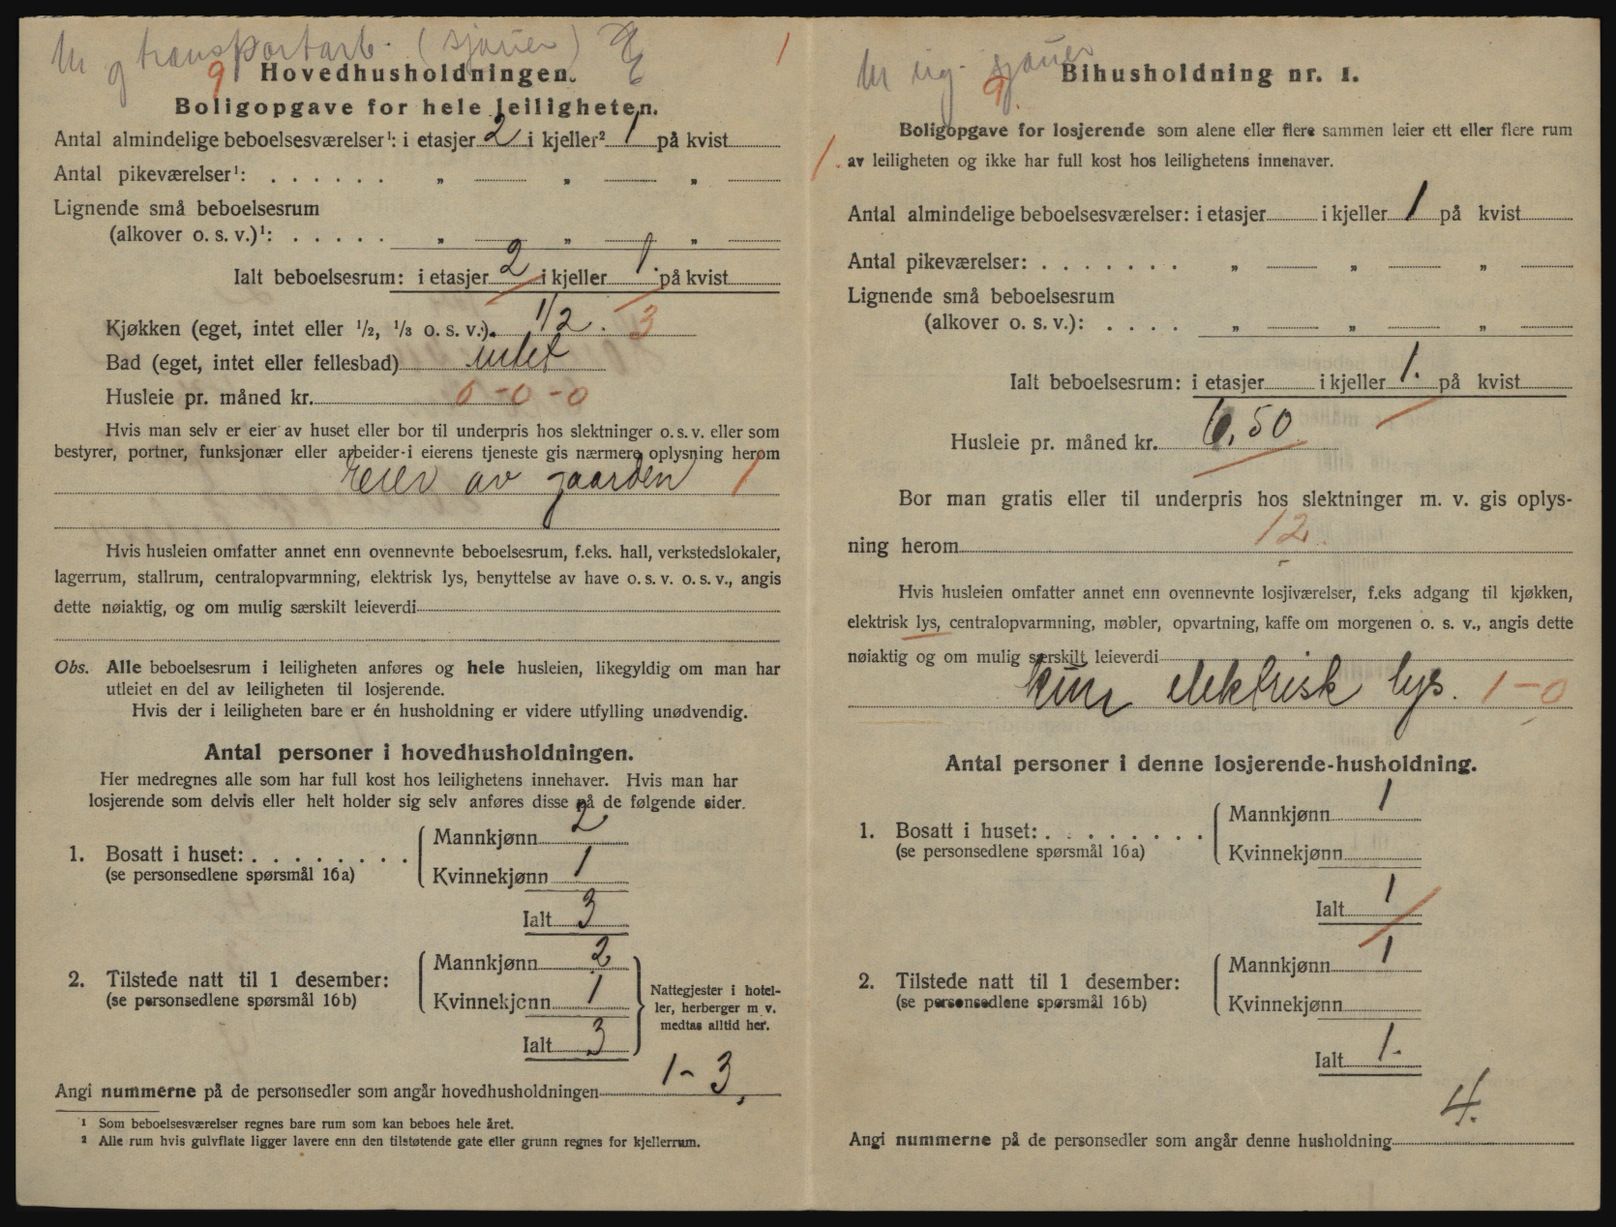 transportarb. (sjauer) E 1
9
Hovedhusholdningen.
Boligopgave for hele leiligheten.
Antal almindelige beboelsesværelser¹: i etasjer 2 i kjeller² 1 på kvist
Antal pikeværelser¹: . . . . . . „ „ „
Lignende små beboelsesrum
(alkover o. s. v.)¹: . . . . . „ „ „
Ialt beboelsesrum: i etasjer 2 i kjeller 1. på kvist
Kjøkken (eget, intet eller ½, ⅓ o. s. v.). 1/2. 3
Bad (eget, intet eller fellesbad) intet
Husleie pr. måned kr. 0-0-0
Hvis man selv er eier av huset eller bor til underpris hos slektninger o. s. v. eller som
bestyrer, portner, funksjonær eller arbeider i eierens tjeneste gis nærmere oplysning herom
eier av gaarden 1
Hvis husleien omfatter annet enn ovennevnte beboelsesrum, f.eks. hall, verkstedslokaler,
lagerrum, stallrum, centralopvarmning, elektrisk lys, benyttelse av have o. s. v. o. s. v., angis
dette nøiaktig, og om mulig særskilt leieverdi
Obs. Alle beboelsesrum i leiligheten anføres og hele husleien, likegyldig om man har
utleiet en del av leiligheten til losjerende.
Hvis der i leiligheten bare er én husholdning er videre utfylling unødvendig.
Antal personer i hovedhusholdningen.
Her medregnes alle som har full kost hos leilighetens innehaver. Hvis man har
losjerende som delvis eller helt holder sig selv anføres disse på de følgende sider.
Mannkjønn 2
1. Bosatt i huset: . . . . . . . .
(se personsedlene spørsmål 16a)
Kvinnekjønn 1
Ialt 3
Mannkjønn 2
2. Tilstede natt til 1 desember:
(se personsedlene spørsmål 16b)
Kvinnekjønn 1
Ialt 3
Nattegjester i hotel-
ler, herberger m. v.
medtas alltid her.
Angi nummerne på de personsedler som angår hovedhusholdningen 1-3,
¹ Som beboelsesværelser regnes bare rum som kan beboes hele året.
² Alle rum hvis gulvflate ligger lavere enn den tilstøtende gate eller grunn regnes for kjellerrum.
sjauer
9.
Bihusholdning nr. 1.
Boligopgave for losjerende som alene eller flere sammen leier ett eller flere rum
1. av leiligheten og ikke har full kost hos leilighetens innehaver.
Antal almindelige beboelsesværelser: i etasjer i kjeller 1 på kvist
Antal pikeværelser: . . . . . . . „ „ „
Lignende små beboelsesrum
(alkover o. s. v.): . . . . „ „ „
Ialt beboelsesrum: i etasjer i kjeller 1. på kvist
Husleie pr. måned kr. 6,50
Bor man gratis eller til underpris hos slektninger m. v. gis oplys-
ning herom 12.
Hvis husleien omfatter annet enn ovennevnte losjiværelser, f.eks adgang til kjøkken,
elektrisk lys, centralopvarmning, møbler, opvartning, kaffe om morgenen o. s. v., angis dette
nøiaktig og om mulig særskilt leieverdi
kun elektrisk lys. 1-0
Antal personer i denne losjerende-husholdning.
Mannkjønn 1
1. Bosatt i huset: . . . . . . . . .
(se personsedlene spørsmål 16a)
Kvinnekjønn
Ialt 1
Mannkjønn 1
2. Tilstede natt til 1 desember:
(se personsedlene spørsmål 16b)
Kvinnekjønn
Ialt 1.
4.
Angi nummerne på de personsedler som angår denne husholdning